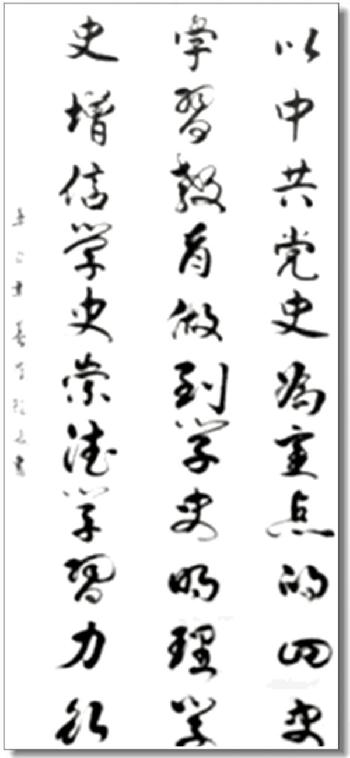 以中共党史為重点的四史
学習教育做到学史明理学
史增信学史崇德学習力行